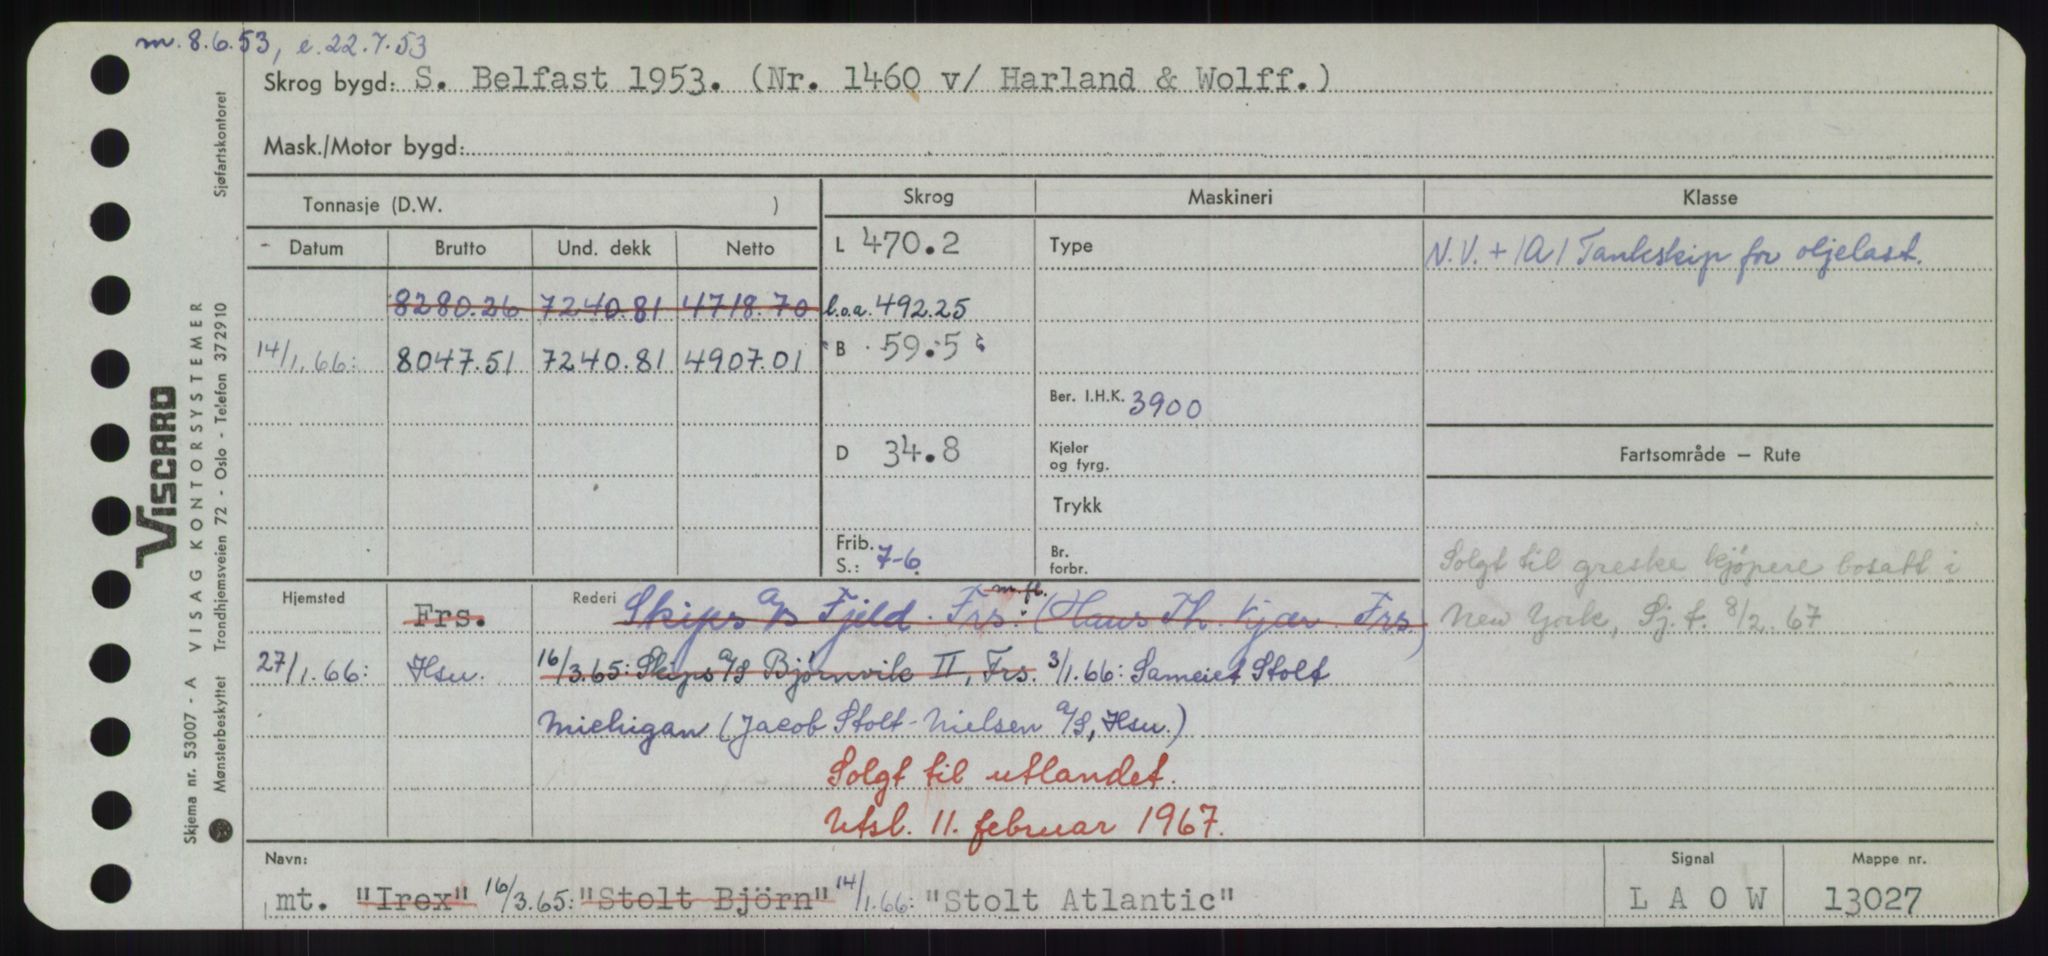 m. 8.6.53, e. 22.7.53
Skrog bygd: S. Belfast 1953. (Nr. 1460 v/ Harland & Wolff.)
Mask./Motor bygd:
Tonnasje (D.W. )
Skrog
Maskineri
Klasse
Datum
Brutto
Und. dekk
Netto
L 470.2
Type
N.V. + 1A1 Tankskip for oljelast.
8280.26 7240.81 4718.70
l.o.a. 492.25
14/1.66: 8047.51 7240.81 4907.01
B 59.5
Ber. I.H.K. 3900
D 34.8
Kjeler
og fyrg.
Fartsområde — Rute
Trykk
Frib.
S.: 7-6
Br.
forbr.
Solgt til greske kjøpere bosatt i
New York, Sj. t. 8/2.67
Hjemsted
Frs.
Rederi
m.fl.
Skips a/s Fjeld. Frs. (Hans Th. Kjær Frs.)
27/1.66: Hsu.
16/3.65: Skips a/s Bjørnvik II, Frs. 3/1.66: Sameiet Stolt
Michigan (Jacob Stolt-Nielsen a/s, Hsu.)
Solgt til utlandet.
Utsl. 11. februar 1967.
Navn:
mt. "Irex" 16/3.65: "Stolt Björn" 14/1.66: "Stolt Atlantic"
Signal
L A O W
Mappe nr.
13027
VISCARD
Skjema nr. 53007 - A VISAG KONTORSYSTEMER
Mønsterbeskyttet Trondhjemsveien 72 - Oslo - Telefon 372910 Sjøfartskontoret